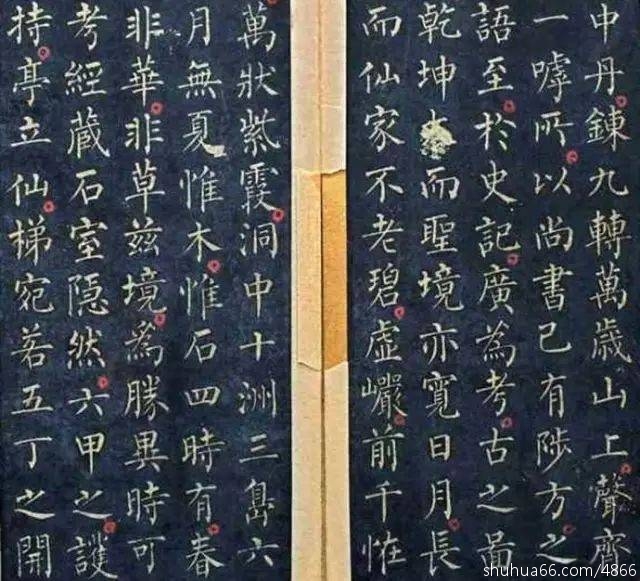 中丹鍊九轉萬歲山上聲齊
一嘑所以尚書已有陟方之
語至於史記廣為考古之啚
乾坤而聖境亦寬日月長
而仙家不老碧虛巗前千恠
萬狀紫霞洞中十洲三島六
月無夏惟木惟石四時有春
非華非草兹境為勝異時可
考經藏石室隱然六甲之護
持亭立仙梯宛若五丁之開
shuhua66.com/4866